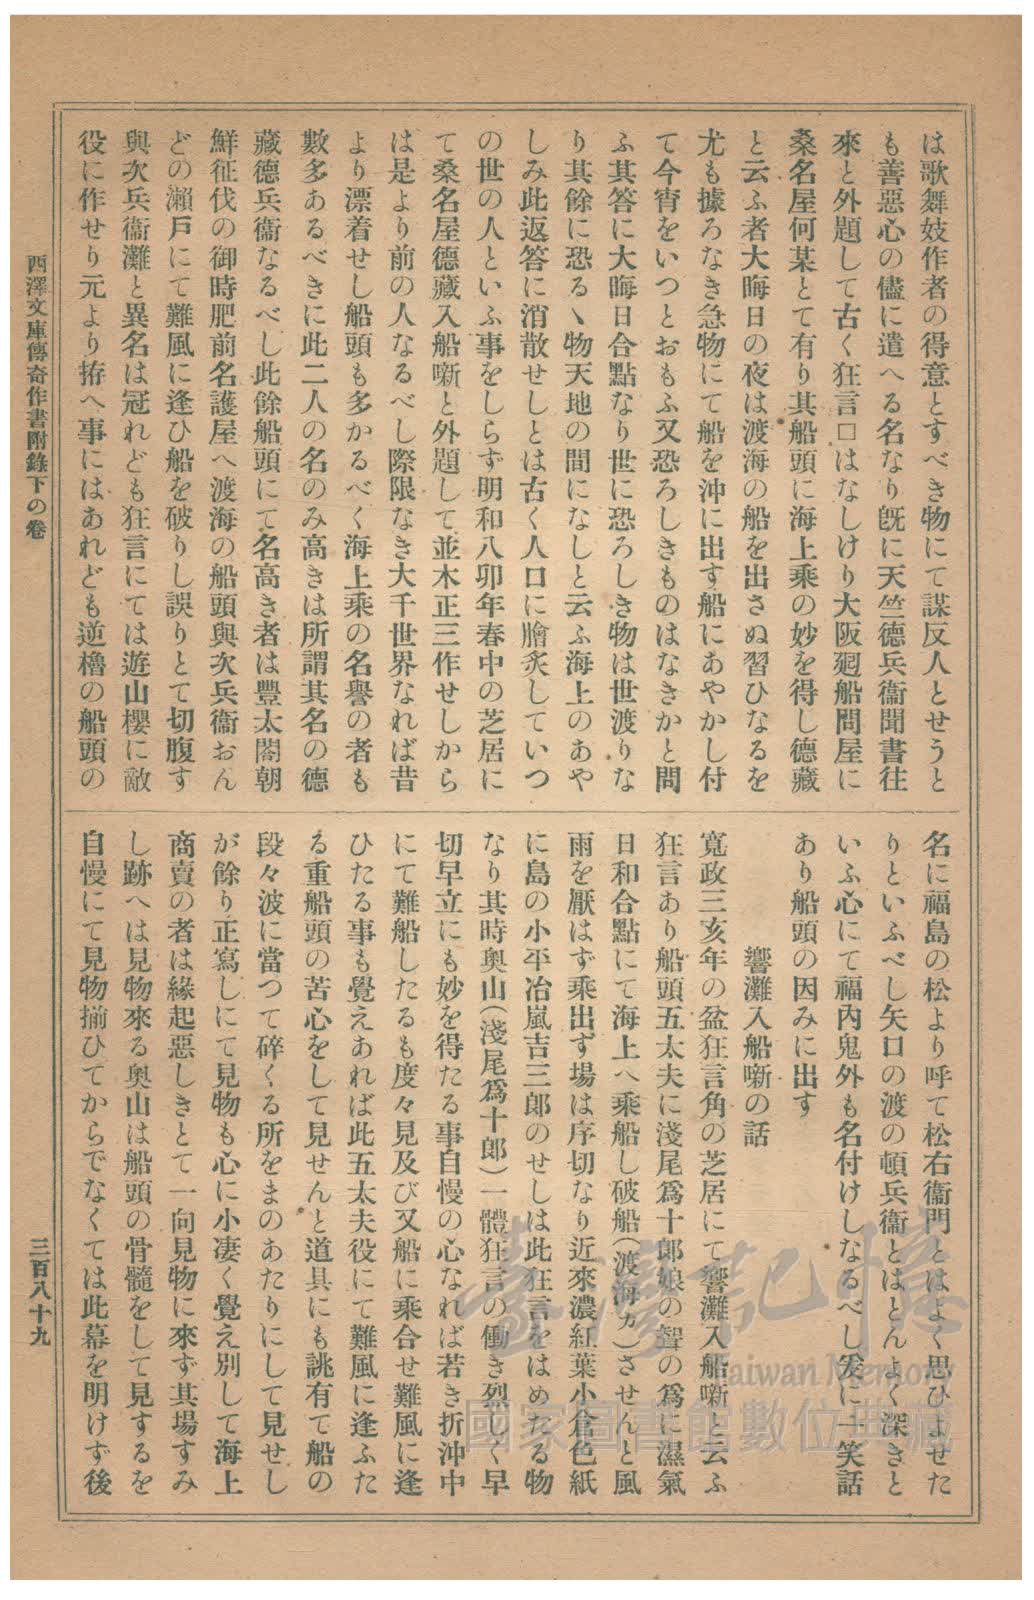 は歌舞妓作者の得意とすべき物にて謀反人とせうと
も善惡心の儘に遣へる名なり旣に天竺德兵衞聞書往
來と外題して古く狂言□はなしけり大阪廻船問屋に
桑名屋何某とて有り其船頭に海上乘の妙を得し德藏
と云ふ者大晦日の夜は渡海の船を出さぬ習ひなるを
尤も據ろなき急物にて船を沖に出す船にあやかし付
て今宵をいつとおもふ又恐ろしきものはなきかと問
ふ其答に大晦日合點なり世に恐ろしき物は世渡りな
り其餘に恐るヽ物天地の間になしと云ふ海上のあや
しみ此返答に消散せしとは古く人口に膾炙していつ
の世の人といふ事をしらず明和八卯年春中の芝居に
て桑名屋德藏入船噺と外題して並木正三作せしから
は是より前の人なるべし際限なき大千世界なれば昔
より漂着せし船頭も多かるべく海上乘の名譽の者も
數多あるべきに此二人の名のみ高きは所謂其名の德
藏德兵衞なるべし此餘船頭にて名高き者は豐太閤朝
鮮征伐の御時肥前名護屋へ渡海の船頭與次兵衞おん
どの瀨戶にて難風に逢ひ船を破りし誤りとて切腹す
與次兵衞灘と異名は冠れども狂言にては遊山櫻に敵
役に作せり元より拵へ事にはあれども逆櫓の船頭の
名に福島の松より呼て松右衞門とはよく思ひよせた
りといふべし矢口の渡の頓兵衞とはとんよく深きと
いふ心にて福內鬼外も名付けしなるべし爰に一笑話
あり船頭の因みに出す
響灘入船噺の話
寬政三亥年の盆狂言角の芝居にて響灘入船噺と云ふ
狂言あり船頭五太夫に淺尾爲十郞娘の聟の爲に濕氣
日和合點にて海上へ乘船し破船(渡海ヵ)させんと風
雨を厭はず乘出す場は序切なり近來濃紅葉小倉色紙
に島の小平冶嵐吉三郞のせしは此狂言をはめたる物
なり其時奧山(淺尾爲十郞)一體狂言の働き烈しく早
切早立にも妙を得たる事自慢の心なれば若き折沖中
にて難船したるも度々見及び又船に乘合せ難風に逢
ひたる事も覺えあれば此五太夫役にて難風に逢ふた
る重船頭の苦心をして見せんと道具にも誂有て船の
段々波に當つて碎くる所をまのあたりにして見せし
が餘り正寫しにて見物も心に小凄く覺え別して海上
商賣の者は緣起惡しきとて一向見物に來ず其場すみ
し跡へは見物來る奧山は船頭の骨髓をして見するを
自慢にて見物揃ひてからでなくては此幕を明けず後
西澤文庫傳奇作書附錄下の卷
三百八十九
臺灣記憶
Taiwan Memory
國家圖書館數位典藏